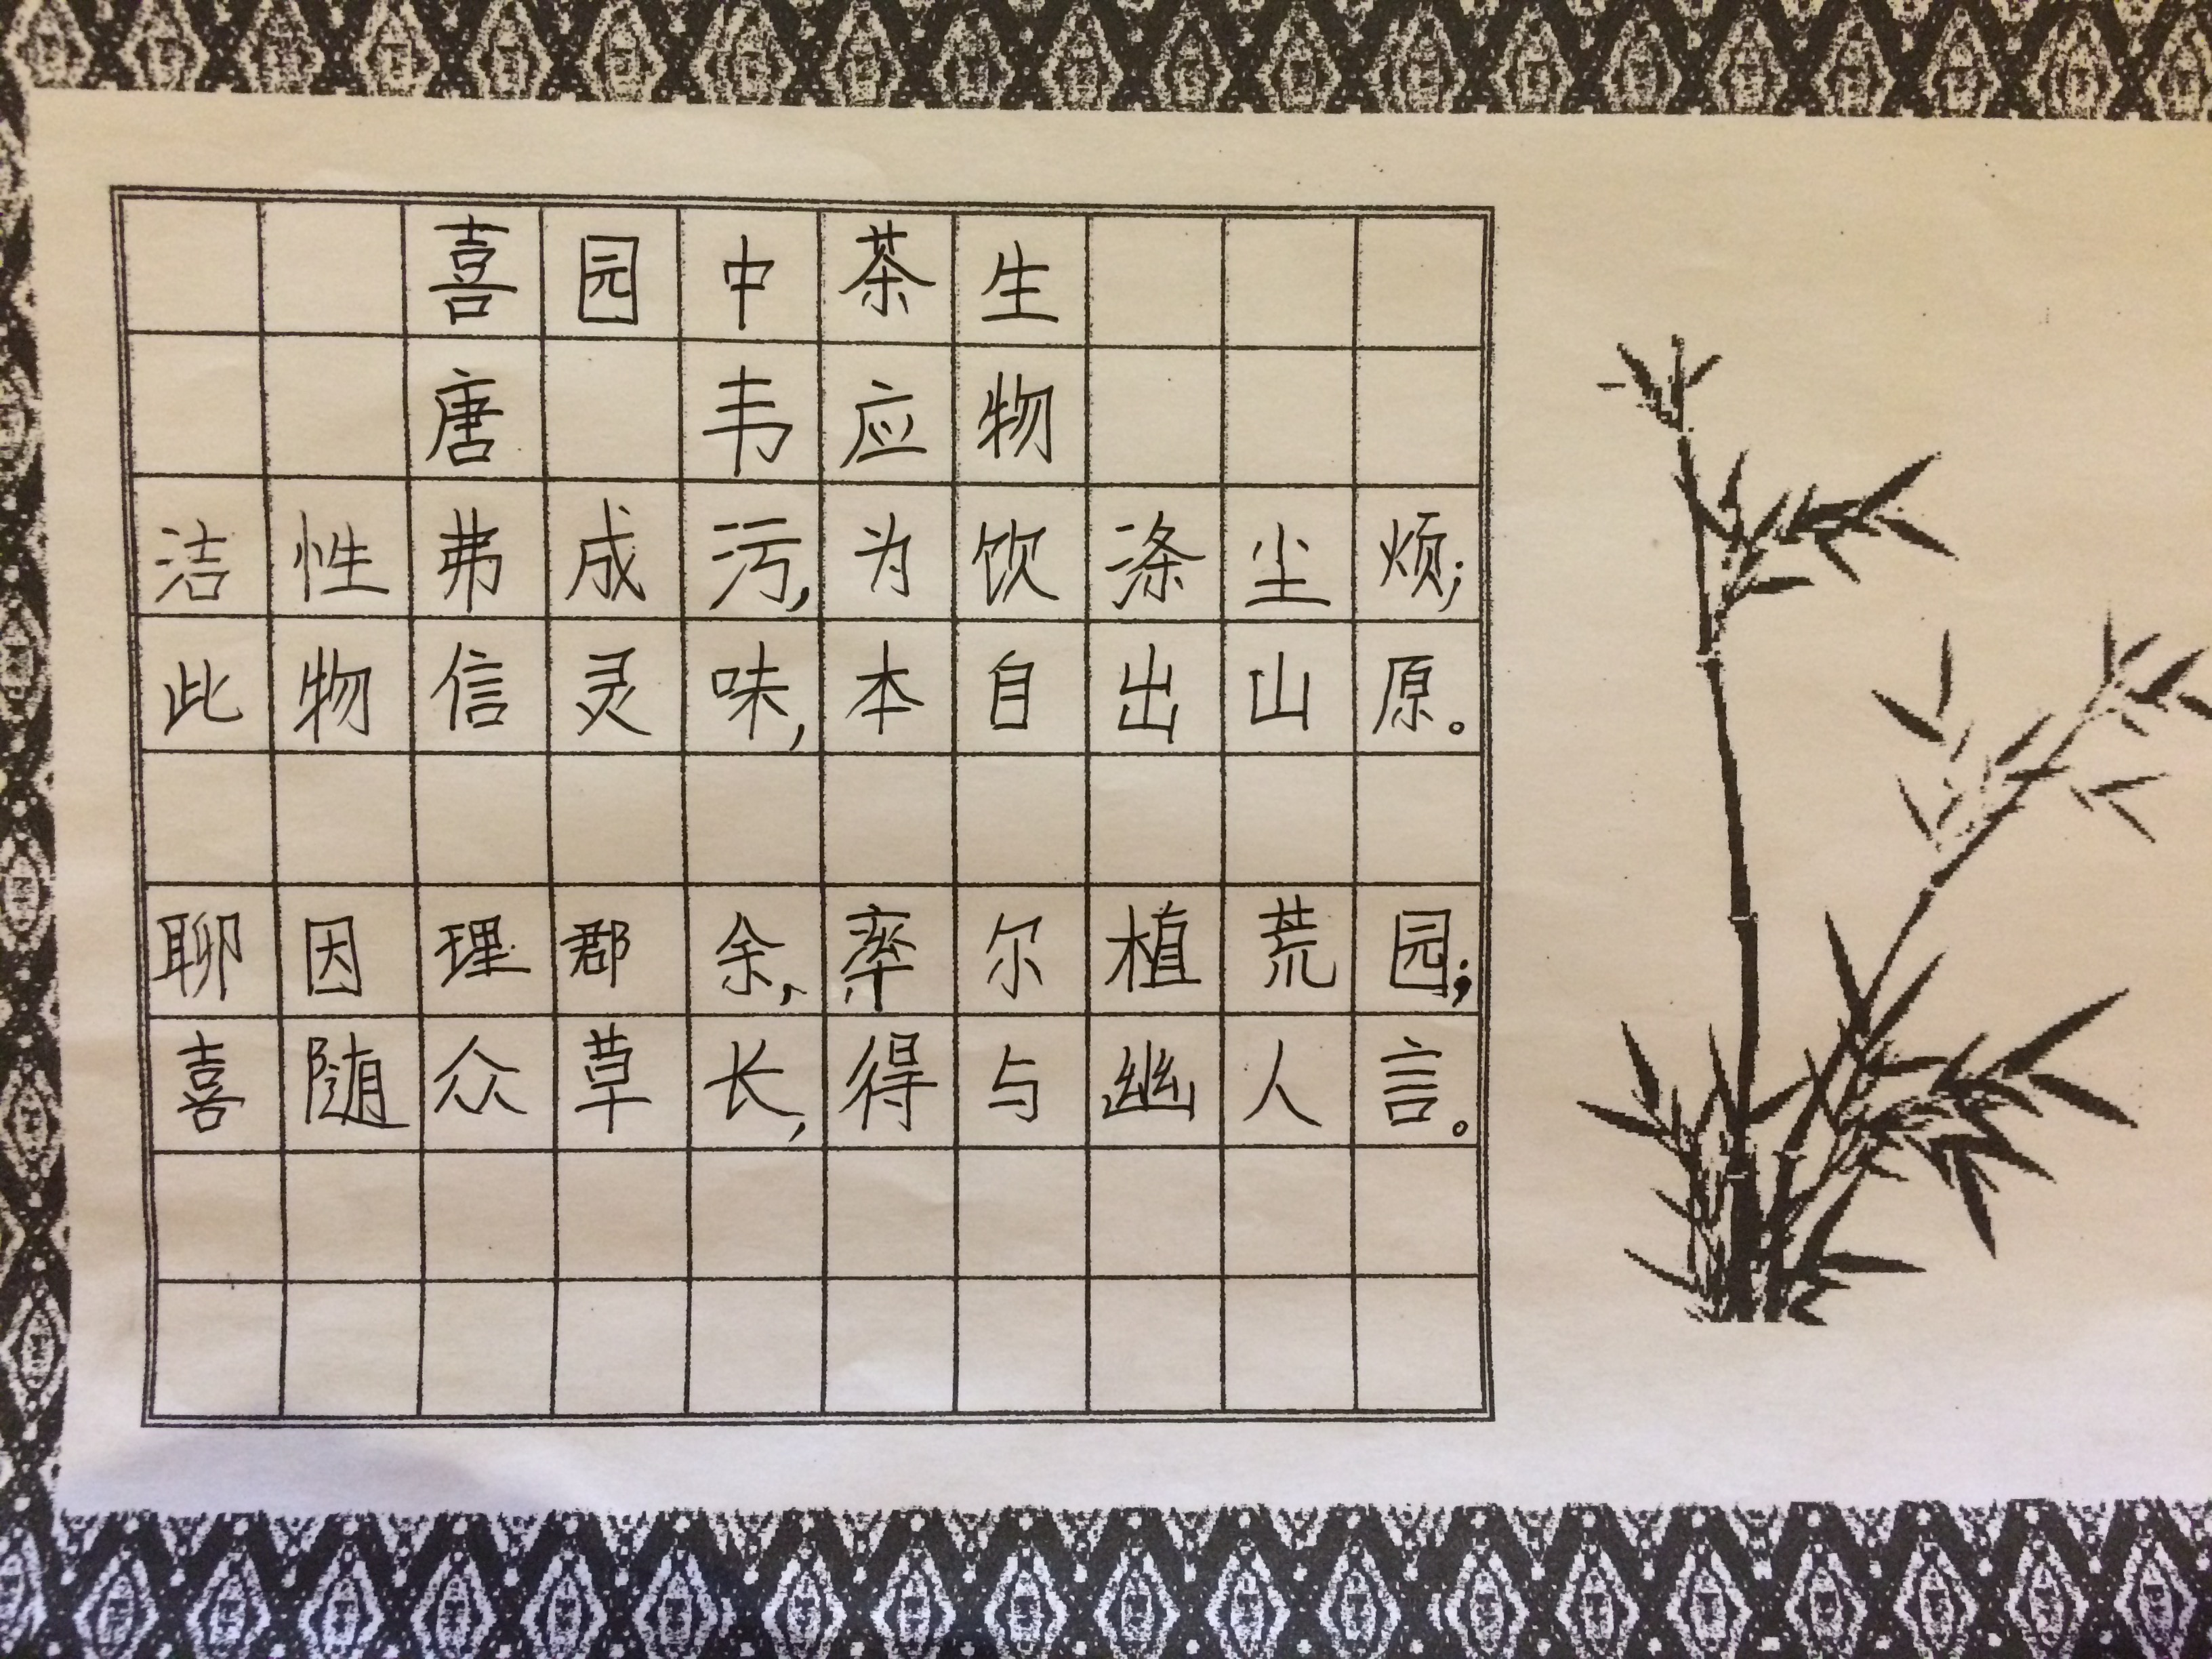 喜园中茶生
唐 韦应物
洁性弗成污,为饮涤尘烦;
此物信灵味,本自出山原。
聊因理郡余,率尔植荒园;
喜随众草长,得与幽人言。